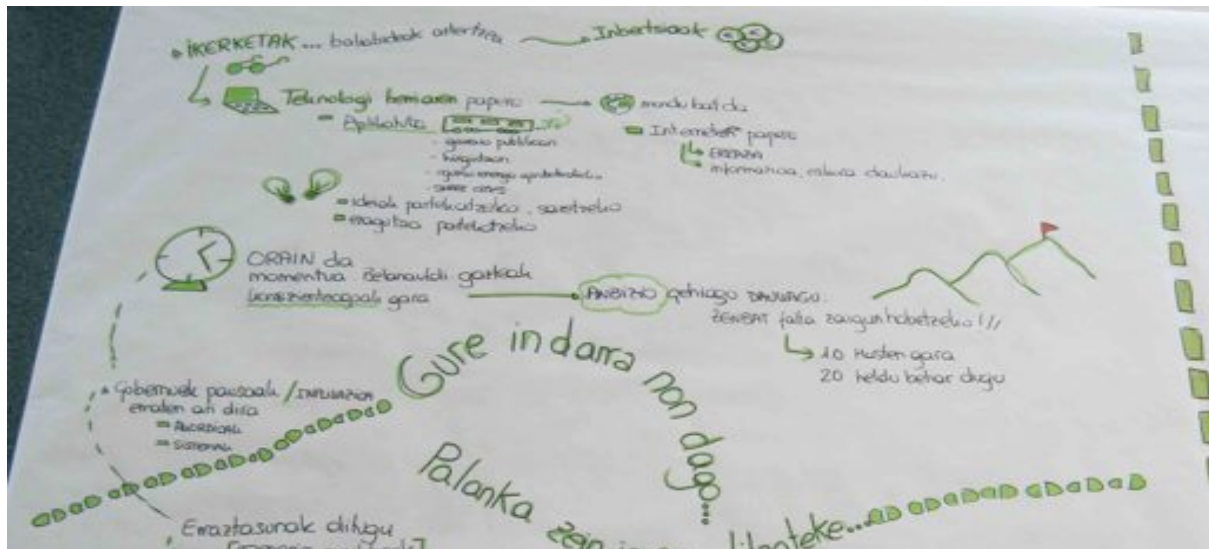 IKERKETAK... baliabideak aztertzea → Inbertsioak
Teknologi berriaren papera → mundu bat da
Aplikatuta
- gizarteo publikoan
- hirigintzan
- SMART CITIES
Internetek papera
ERREZA
informazioa eskura daukazu.
ideiak partekatzeko, saretzeko
eragitea partekatzeko
ORAIN da
momentua Belaunaldi gazteak
kontzienteagoak gara → ANBIZIO gehiago DAUKAGU.
ZENBAT falta zaigun hobetzeko!!!
10 ikusten gara
20 heldu behar dugu
Gobernuek pausoak /
ematen ari dira
SISTEMAK
Gure indarra non dago...
Palanka zein izan litezteke...
Erraztasunak ditugu